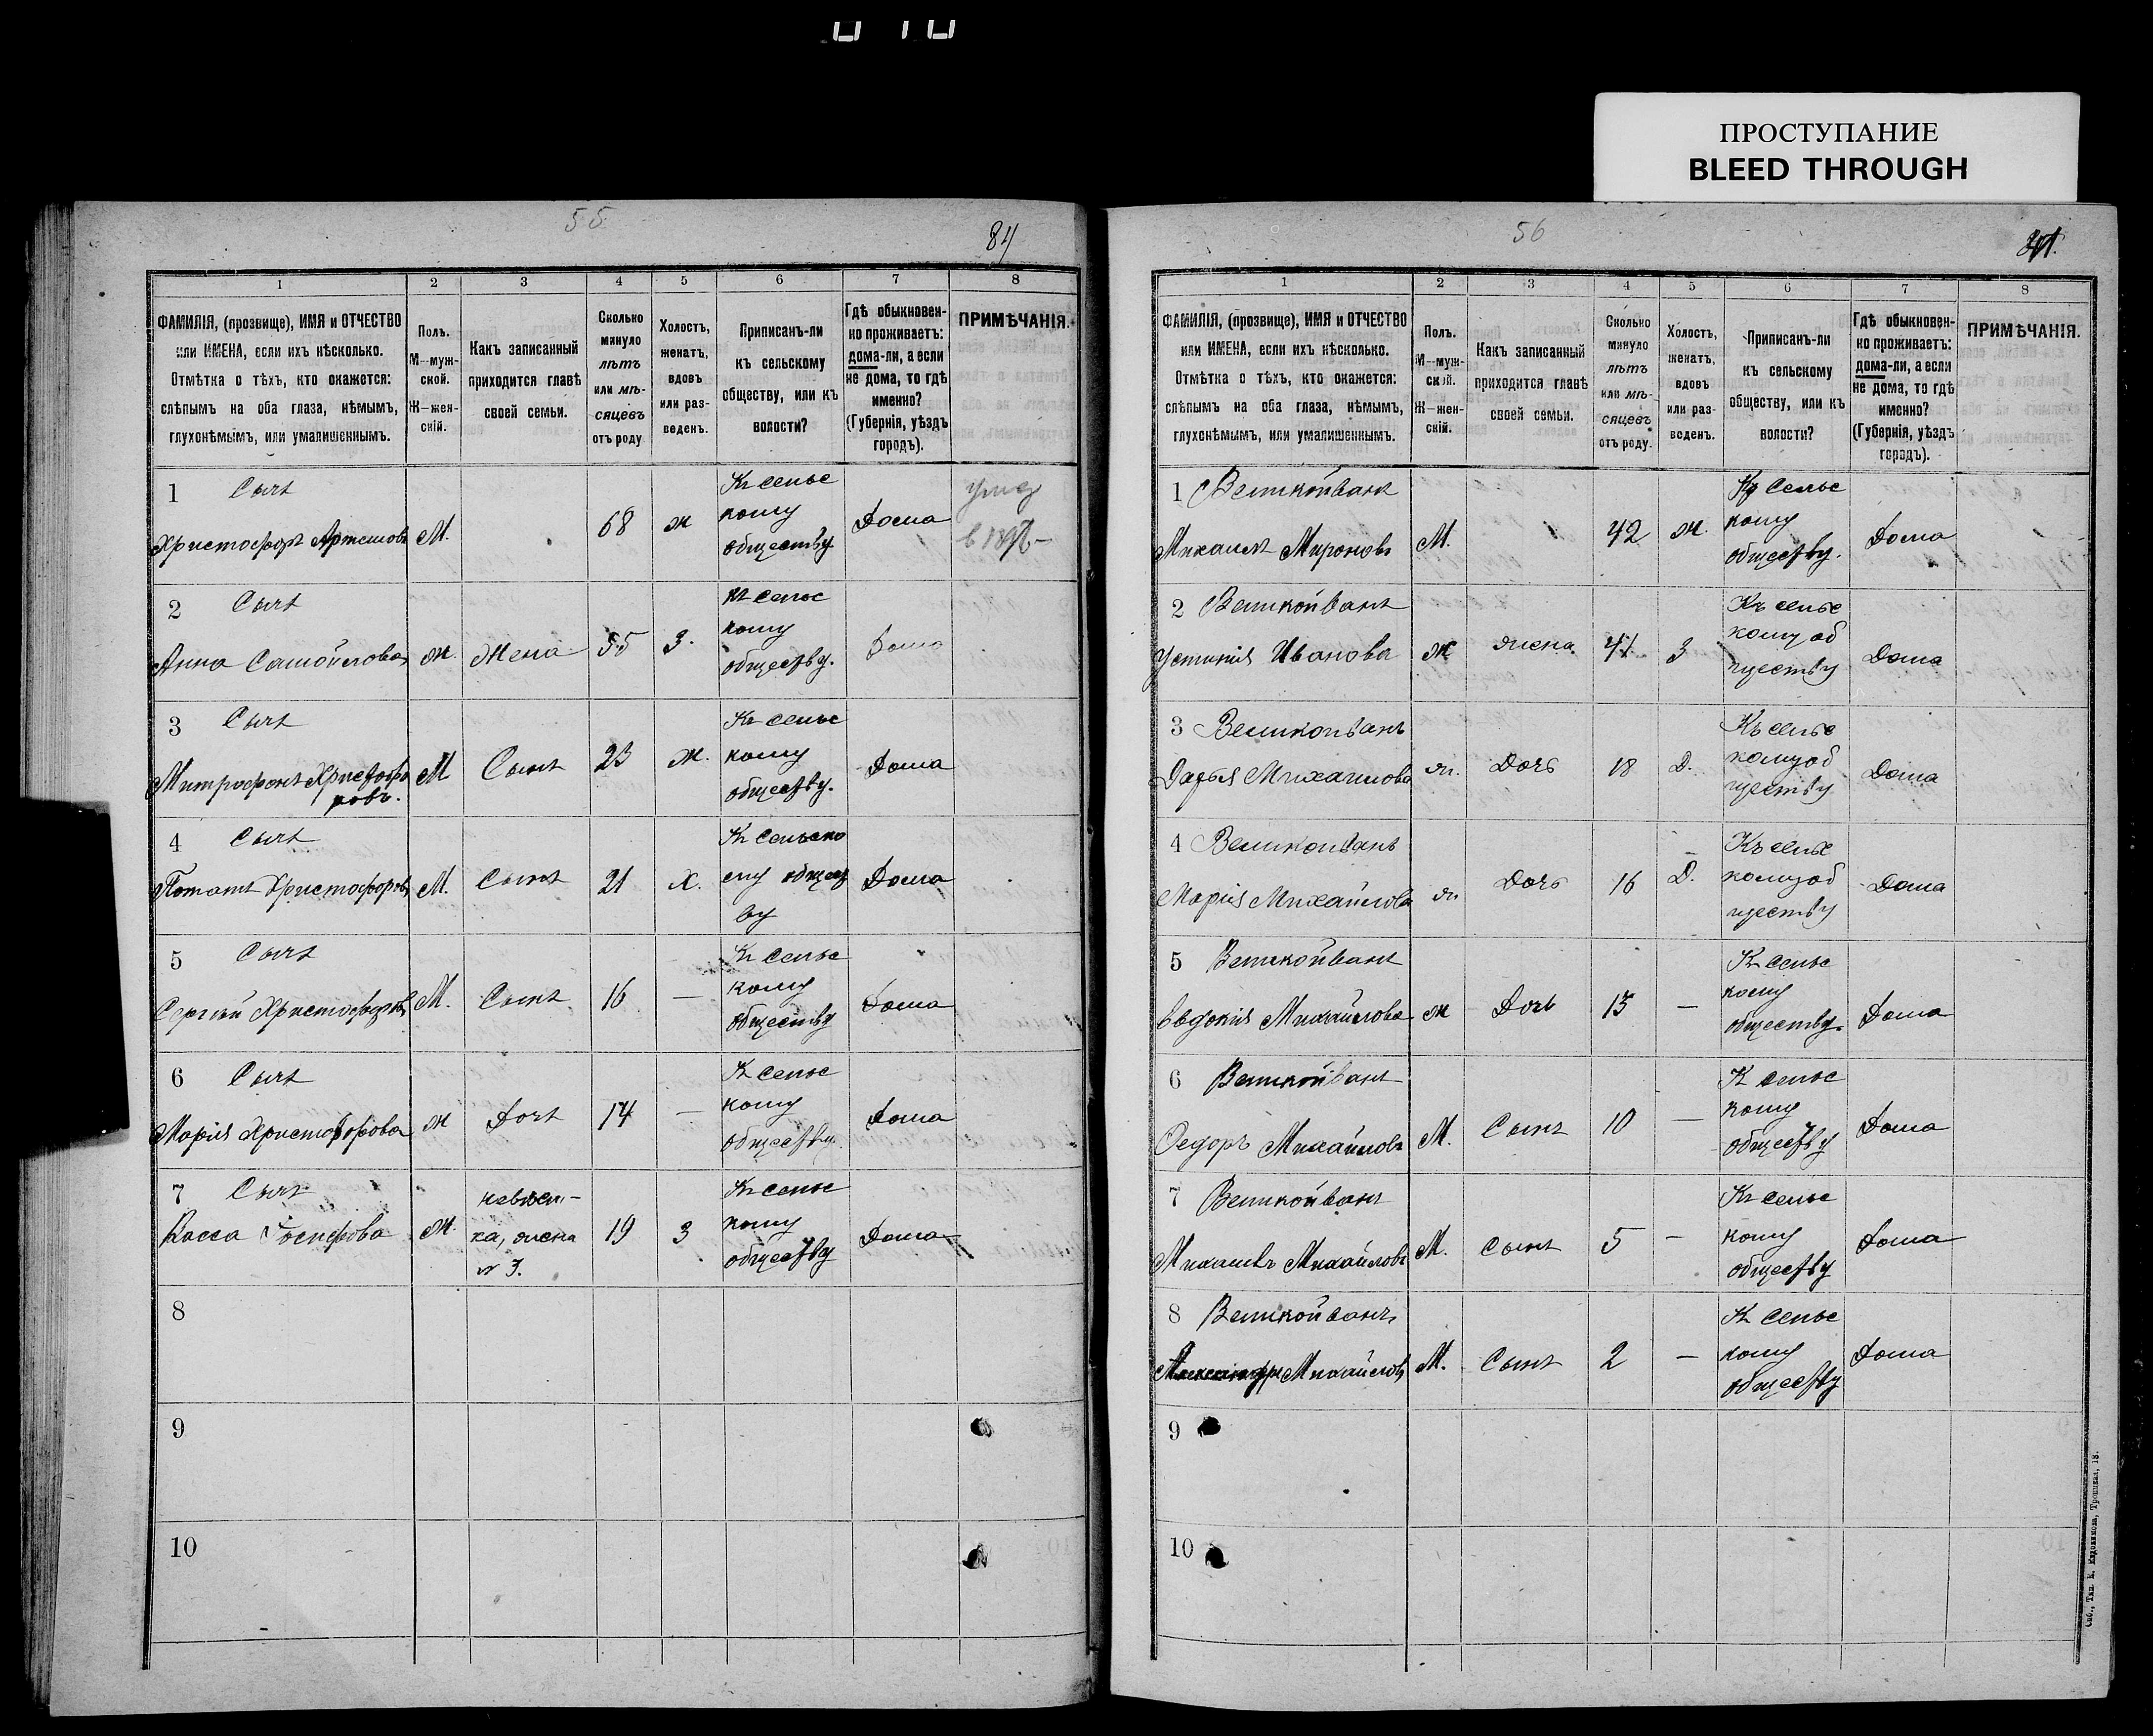 ПРОСТУПАНИЕ
BLEED THROUGH
55
84
1 2 3 4 5 6 7 8
ФАМИЛІЯ, (прозвище), ИМЯ и ОТЧЕСТВО
или ИМЕНА, если ихъ нѣсколько.
Отмѣтка о тѣхъ, кто окажется:
слѣпымъ на оба глаза, нѣмымъ,
глухонѣмымъ, или умалишеннымъ.
Полъ.
М—муж-
ской.
Ж—жен-
скій.
Какъ записанный
приходится главѣ
своей семьи.
Сколько
минуло
лѣтъ
или мѣ-
сяцевъ
отъ роду
Холостъ,
женатъ,
вдовъ
или раз-
веденъ.
Приписанъ-ли
къ сельскому
обществу, или къ
волости?
Гдѣ обыкновен-
но проживаетъ:
дома-ли, а если
не дома, то гдѣ
именно?
(Губернія, уѣздъ
городъ).
ПРИМѢЧАНІЯ.
1 Сычъ
Христофоръ Артемовъ М. 68 ж
Къ сельс
кому
обществу
Дома
2 Сычъ
Анна Самойлова ж. Жена 55 З.
Къ сельс
кому
обществу.
Дома
3 Сычъ
Митрофанъ Христофо
ровъ.
М Сынъ 23 ж.
Къ сельс
кому
обществу.
Дома
4 Сычъ
Потапъ Христофоровъ М. Сынъ 21 Х.
Къ сельско
му общест
ву
Дома
5 Сычъ
Сергѣй Христофоровъ М. Сынъ 16 —
Къ сельс
кому
обществу
Дома
6 Сычъ
Марія Христофорова ж Дочъ 14 —
Къ сельс
кому
обществу.
Дома
7 Сычъ
Васса Іосифова ж.
невѣст-
ка, жена
№ 3.
19 З
Къ сельс
кому
обществу
Дома
8
9
10
56
1 2 3 4 5 6 7 8
ФАМИЛІЯ, (прозвище), ИМЯ и ОТЧЕСТВО
или ИМЕНА, если ихъ нѣсколько.
Отмѣтка о тѣхъ, кто окажется:
слѣпымъ на оба глаза, нѣмымъ,
глухонѣмымъ, или умалишеннымъ.
Полъ.
М—муж-
ской.
Ж—жен-
скій.
Какъ записанный
приходится главѣ
своей семьи.
Сколько
минуло
лѣтъ
или мѣ-
сяцевъ
отъ роду.
Холостъ,
женатъ,
вдовъ
или раз-
веденъ.
Приписанъ-ли
къ сельскому
обществу, или къ
волости?
Гдѣ обыкновен-
но проживаетъ:
дома-ли, а если
не дома, то гдѣ
именно?
(Губернія, уѣздъ
городъ).
ПРИМѢЧАНІЯ.
1 Великойванъ
Михаилъ Мироновъ М. 42 ж.
Къ сельс
кому
обществу.
Дома
2 Великойванъ
Устинія Иванова ж жена 41 З
Къ сельс
кому об
ществу
Дома
3 Великоиванъ
Дарья Михаилова ж. Дочь 18 Д.
Къ сельс
кому об
ществу
Дома
4 Великоиванъ
Марія Михайлова ж Дочь 16 Д.
Къ сельс
кому об
ществу
Дома
5 Великойванъ
Евдокія Михайлова ж Дочь 13 —
Къ сельс
кому
обществу
Дома
6 Великойванъ
Федоръ Михайловъ М. Сынъ 10 —
Къ сельс
кому
обществу
Дома
7 Великойванъ
Михаилъ Михайловъ М. Сынъ 5 —
Къ сельс
кому
обществу
Дома
8 Великойванъ
Александръ Михайловъ М. Сынъ 2 —
Къ сельс
кому
обществу
Дома
9
10